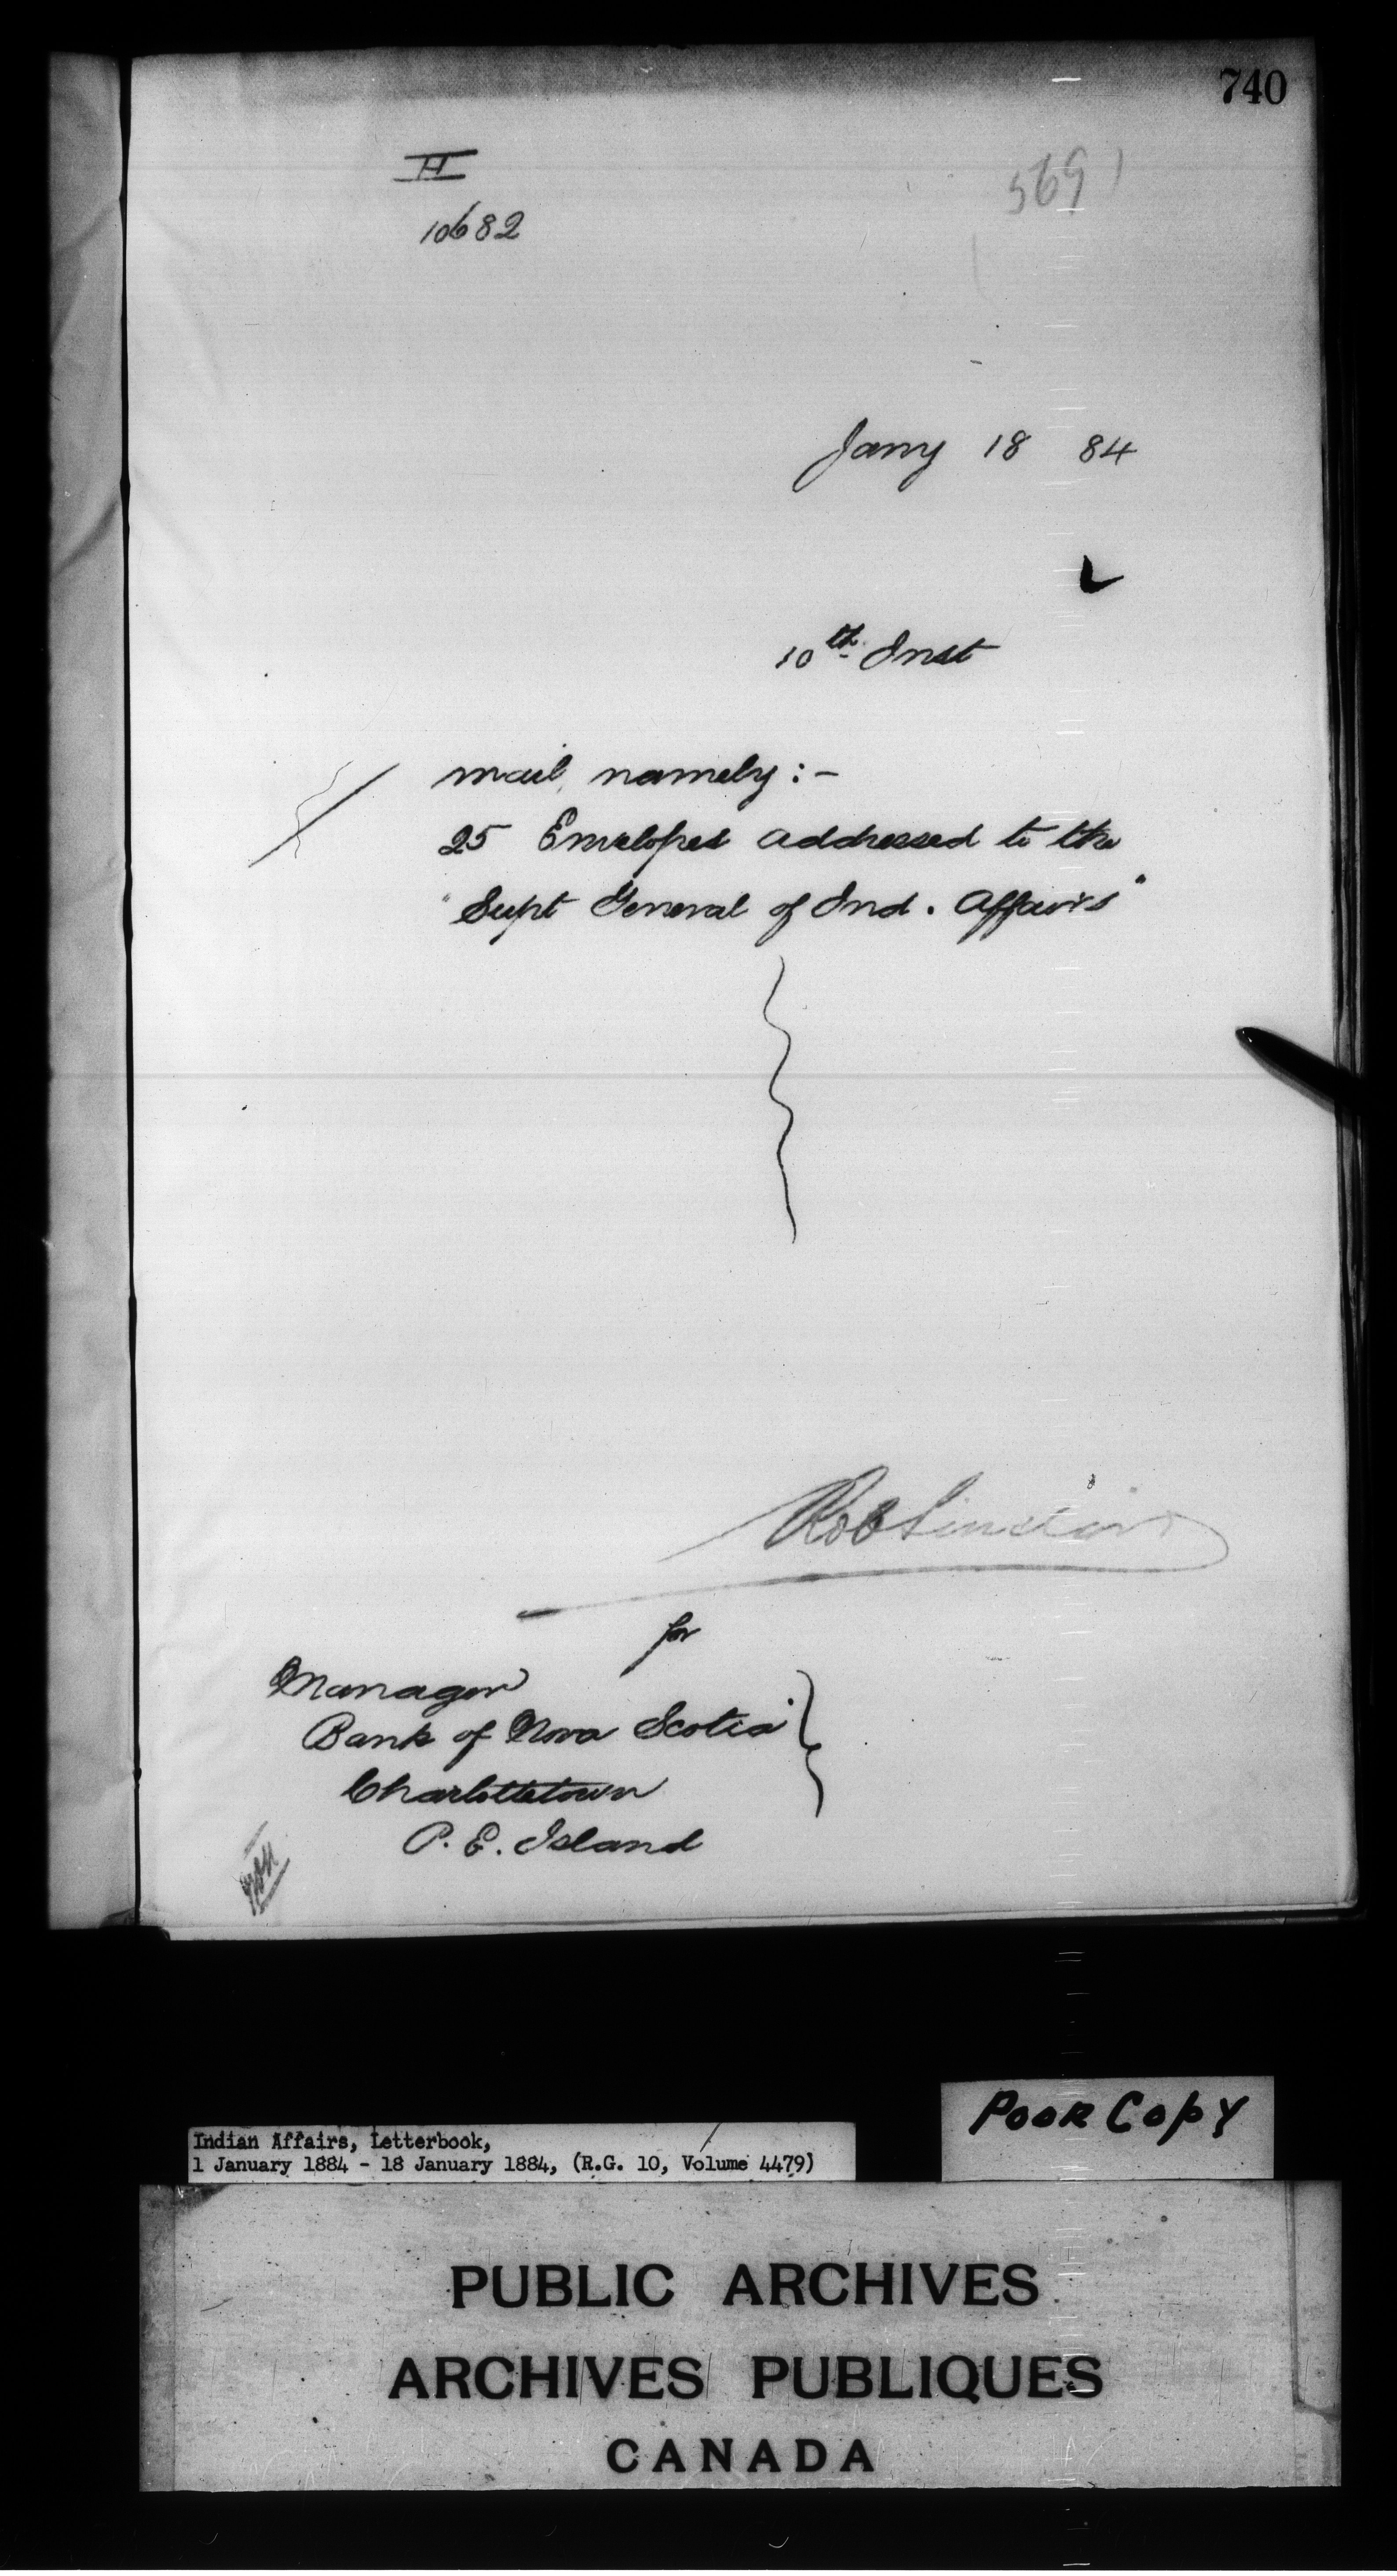 740
H
10682
5691
Jany 18 84
10th Inst
mail, namely :-
25 Envelopes addressed to the
"Supt General of Ind. Affairs"
Rob Sinclair
for
Manager
Bank of Nova Scotia
Charlottetown
P. E. Island
Poor Copy
Indian Affairs, Letterbook,
1 January 1884 - 18 January 1884, (R.G. 10, Volume 4479)
PUBLIC ARCHIVES
ARCHIVES PUBLIQUES
CANADA